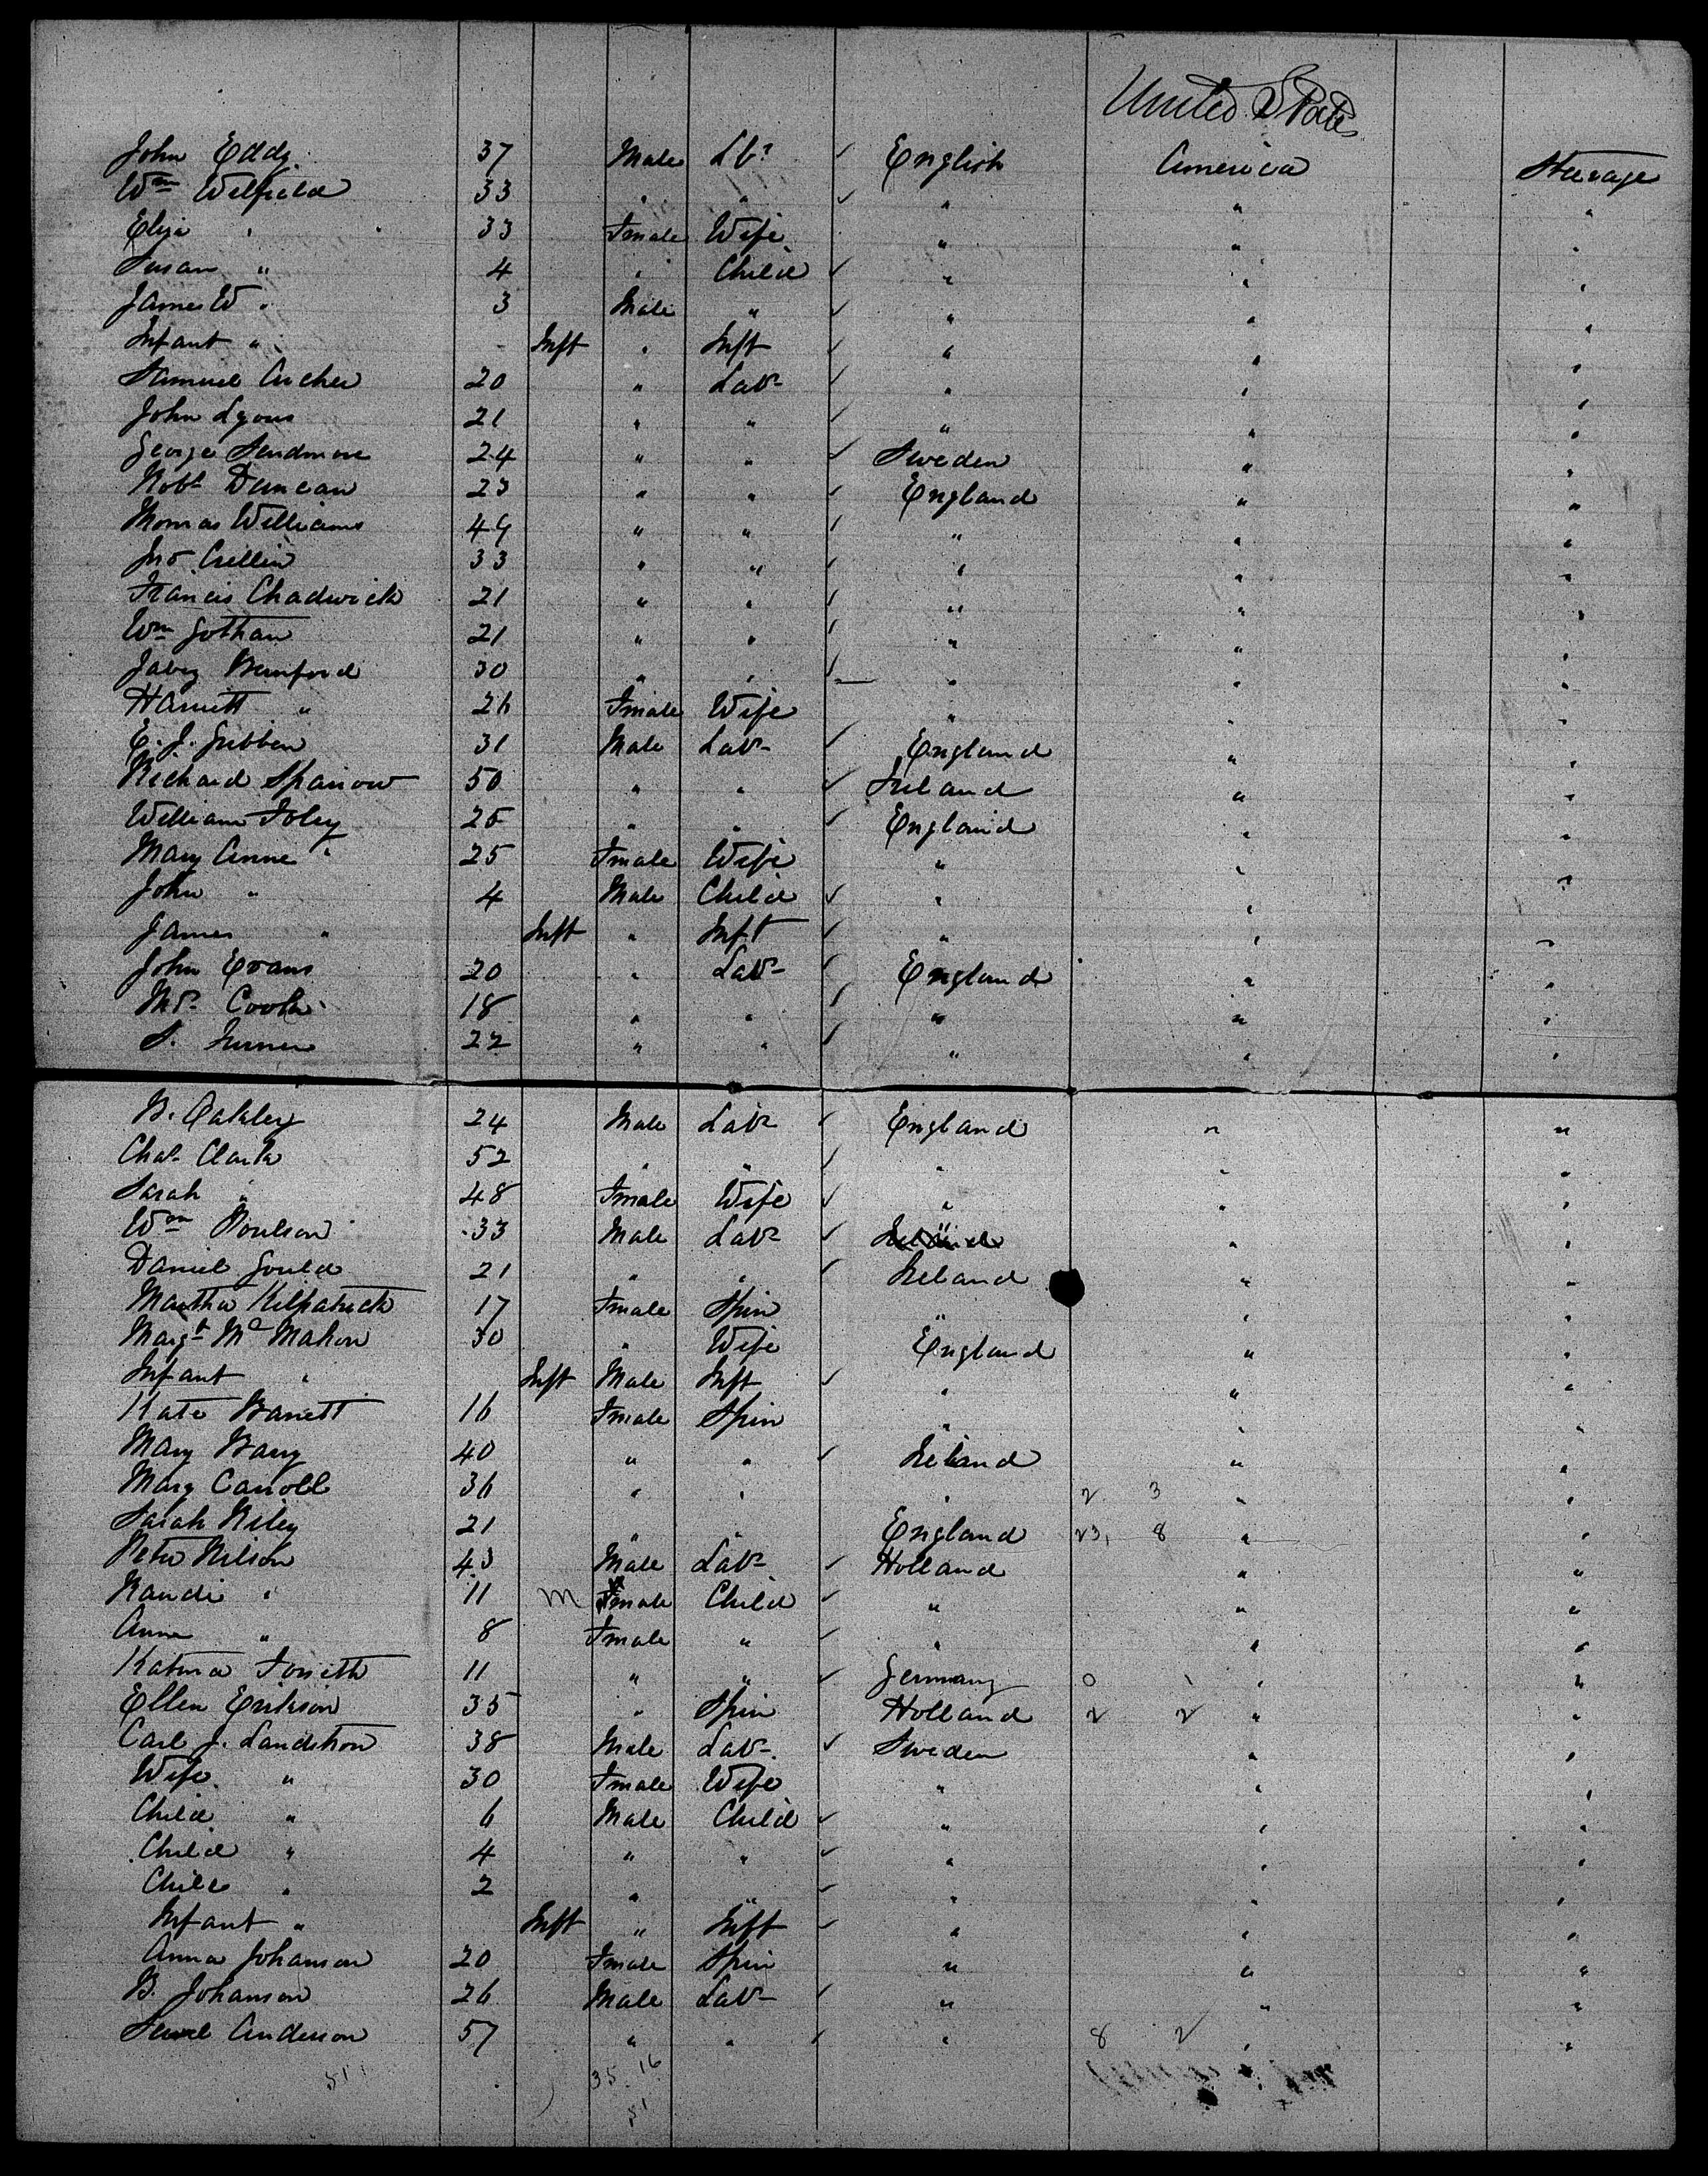 United States
John Eddy 37 Male Lbr ✓ English America Steerage
Wm Welfield 33 " " ✓ " " "
Eliza " 33 Fmale Wife " " "
Susan " 4 " Child ✓ " " "
James W " 3 Male " ✓ " " "
Infant " - Inft " Inft ✓ " " "
Samuel Archer 20 " Labr ✓ " " "
John Lyons 21 " " ✓ " " "
George Sendmore 24 " " ✓ Sweden " "
Robt Duncan 23 " " ✓ England " "
Thomas Williams 49 " " ✓ " " "
Jno Crellin 33 " " ✓ " " "
Francis Chadwick 21 " " ✓ " " "
Wm Gothan 21 " " ✓ " " "
Jabez Bamford 30 " " ✓ " " "
Harriett " 26 Fmale Wife " " "
E. J. Gribben 31 Male Labr ✓ England " "
Richard Sparrow 50 " " ✓ Ireland " "
William Foley 25 " " ✓ England " "
Mary Anne " 25 Fmale Wife " " "
John " 4 Male Child ✓ " " "
James " Inft " Inft ✓ " " "
John Evans 20 " Labr ✓ England " "
Mr. Cook 18 " " ✓ " " "
S. Turner 22 " " ✓ " " "
B. Oakley 24 Male Labr ✓ England " "
Chas Clark 52 " " ✓ " " "
Sarah " 48 Fmale Wife ✓ " " "
Wm Poulson 33 Male Labr ✓ Ireland " "
Daniel Gould 21 " " ✓ Ireland " "
Martha Kilpatrick 17 Fmale Spin " " "
Margt McMahon 30 " Wife England " "
Infant " Inft Male Inft ✓ " " "
Kate Barrett 16 Fmale Spin " " "
Mary Barry 40 " " ✓ Ireland " "
Mary Carroll 36 " " " 2 3 " "
Sarah Riley 21 " " England 23, 8 " "
Peter Nilson 43 Male Labr ✓ Holland " "
Randi " 11 m Fmale Child ✓ " " "
Anna " 8 Fmale " ✓ " " "
Katrina 11 " " ✓ Germany 0 1 " "
Ellen Erikson 35 " Spin Holland 2 2 " "
Carl J. Landstron 38 Male Labr ✓ Sweden " "
Wife " 30 Fmale Wife " " "
Child " 6 Male Child ✓ " " "
Child " 4 " " ✓ " " "
Child " 2 " " ✓ " " "
Infant " Inft " Inft ✓ " " "
Anna Johanson 20 Fmale Spin " " "
B. Johanson 26 Male Labr ✓ " " "
Anderson 57 " " ✓ " 8 2 " "
51 35 16
51